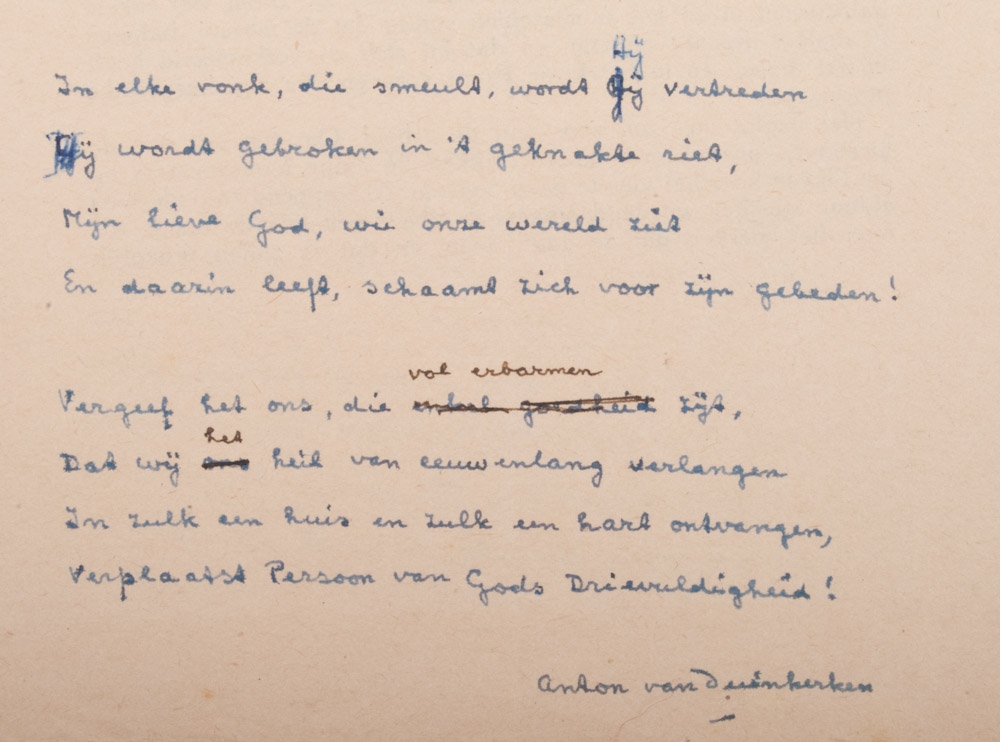 Hij
In elke vonk, die smeult, wordt Gij vertreden
Hij wordt gebroken in 't geknakte riet,
Mijn lieve God, wie onze wereld ziet
En daarin leeft, schaamt zich voor zijn gebeden!
vol erbarmen
Vergeef het ons, die enkel goedheid zijt,
het
Dat wij ons heil van eeuwenlang verlangen
In zulk een huis en zulk een hart ontvangen,
Verplaatst Persoon van Gods Drievuldigheid!
Anton van Duinkerken